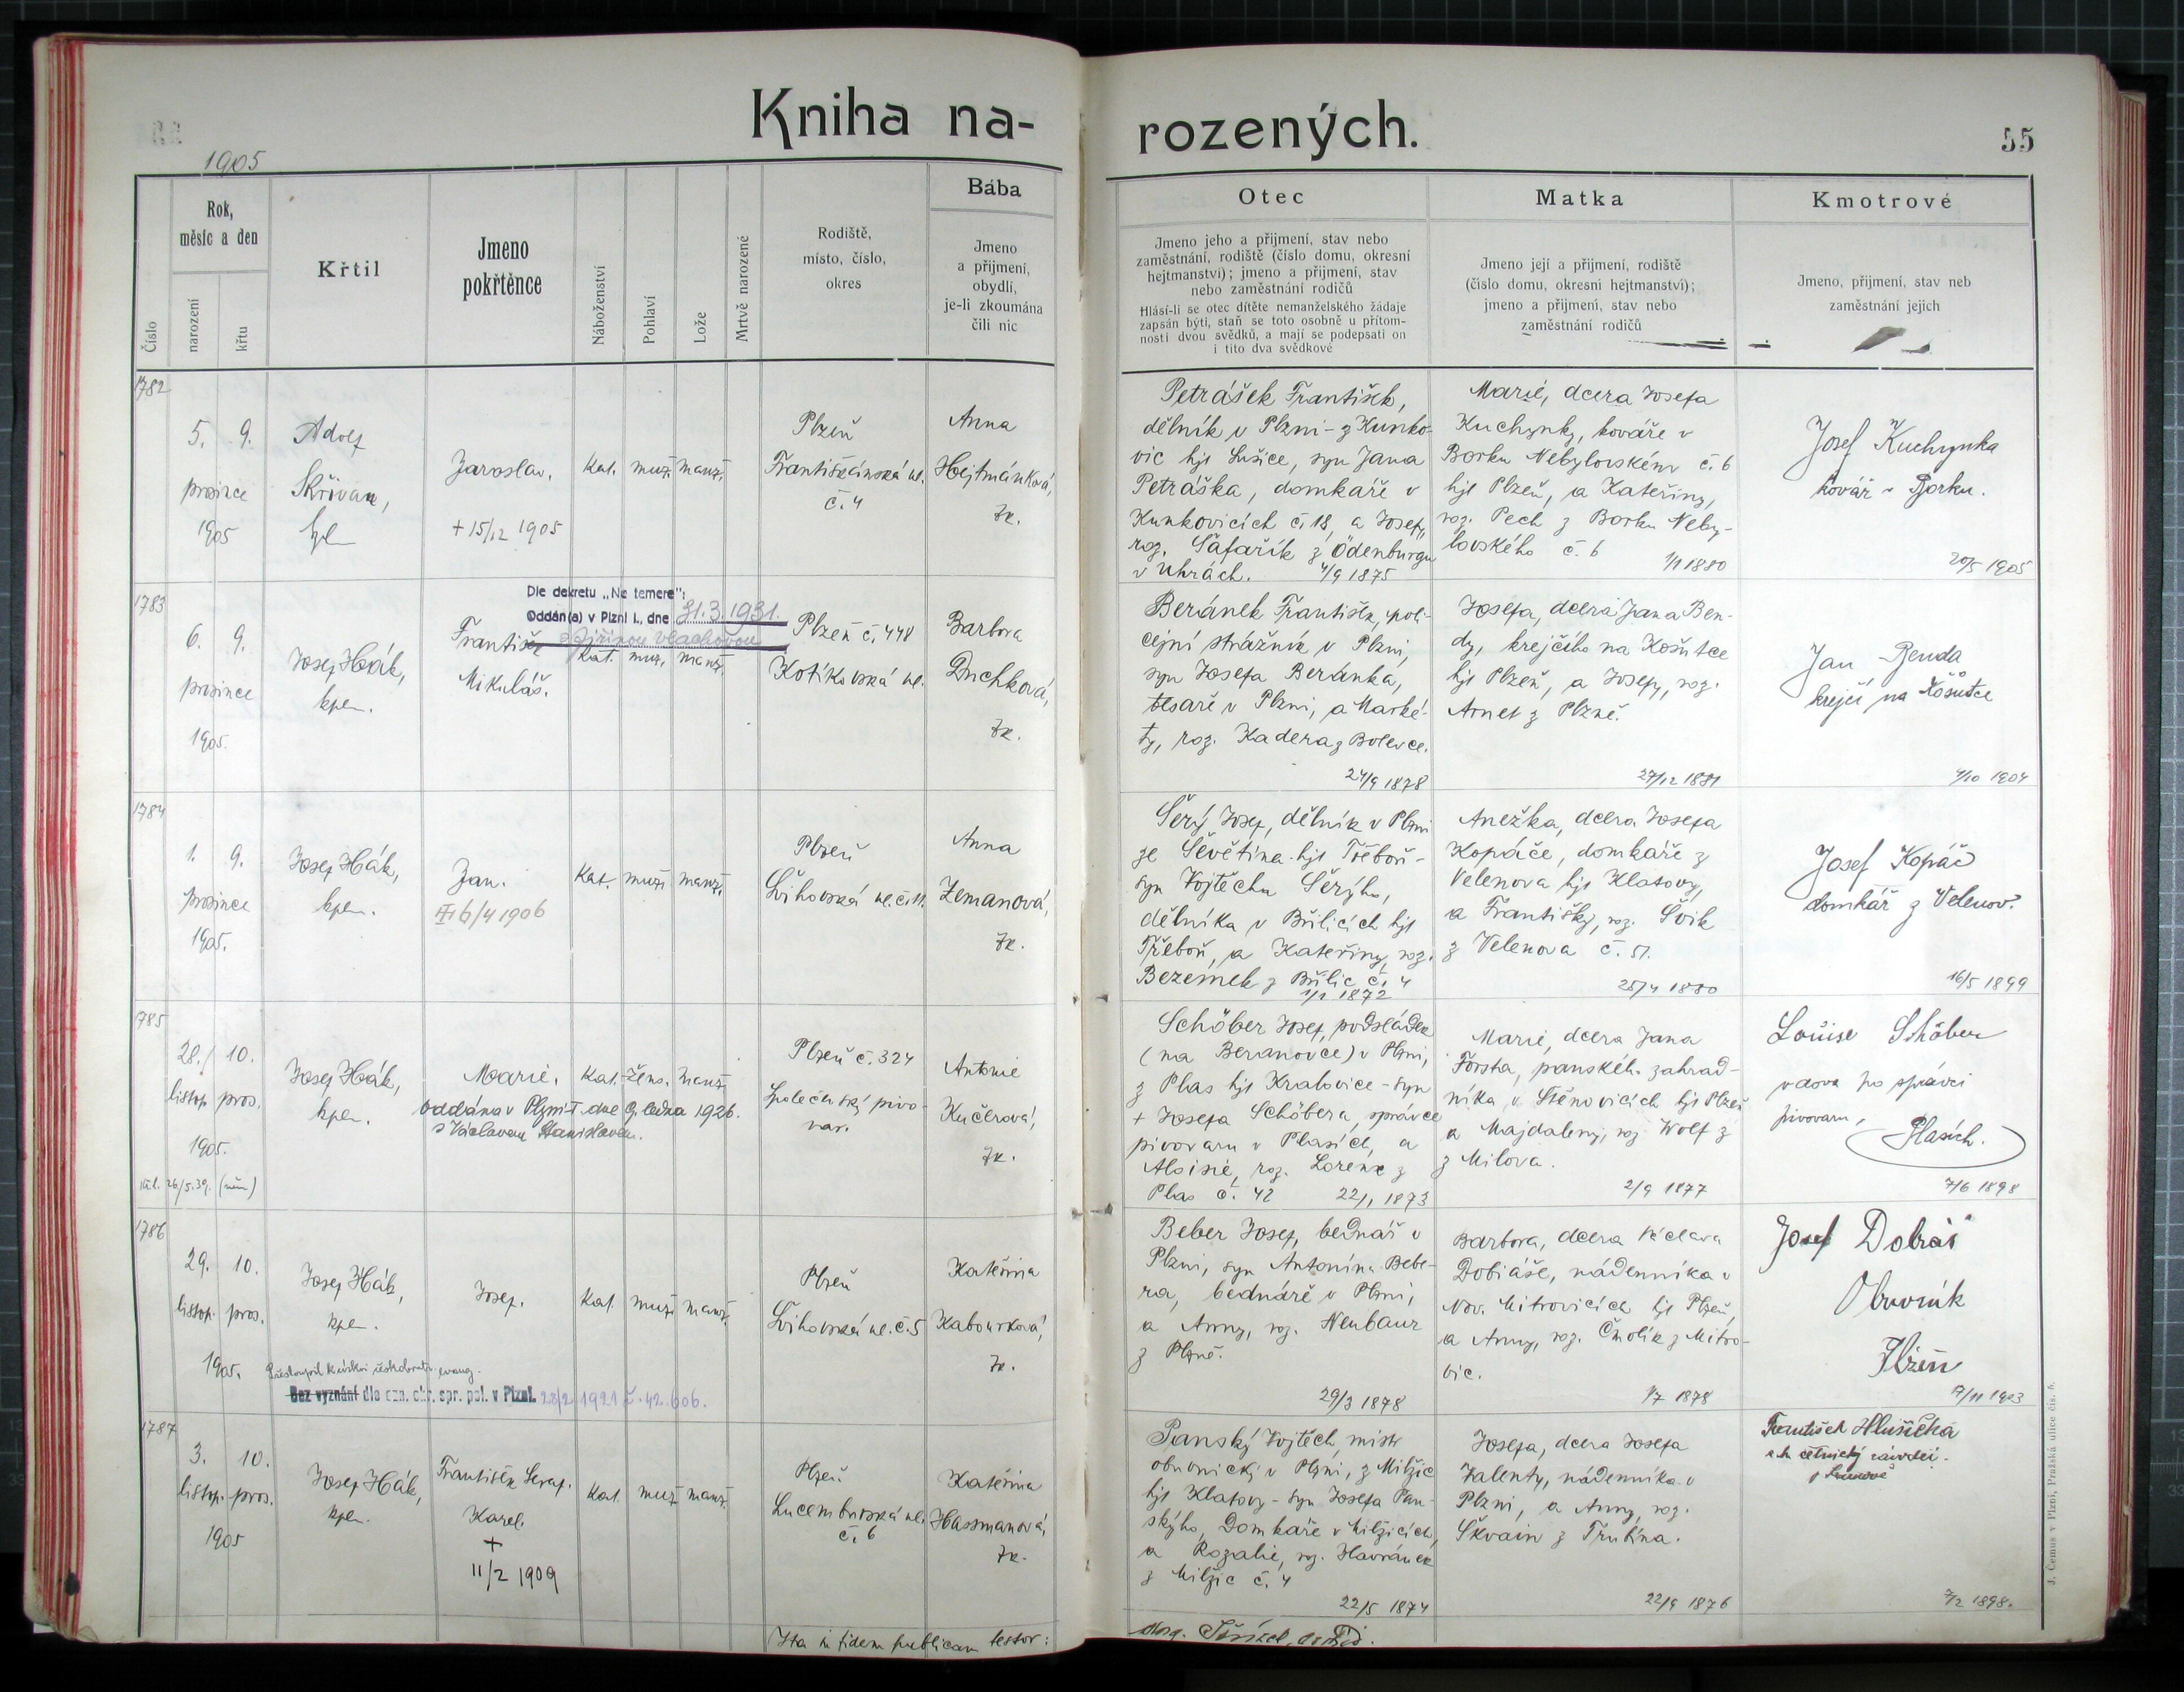 Kniha na-
rozených.
55
1905
Číslo
Rok,
měsíc a den
narození
křtu
Křtil
Jmeno
pokřtěnce
Náboženství
Pohlaví
Lože
Mrtvě narozené
Rodiště,
místo, číslo,
okres
Bába
Jmeno
a přijmení,
obydlí,
je-li zkoumána
čili nic
Otec
Jmeno jeho a přijmení, stav nebo
zaměstnání, rodiště (číslo domu, okresní
hejtmanství); jmeno a přijmení, stav
nebo zaměstnání rodičů
Hlásí-li se otec dítěte nemanželského žádaje
zapsán býti, staň se toto osobně u přítom-
nosti dvou svědků, a mají se podepsati on
i tito dva svědkové
Matka
Jmeno její a přijmení, rodiště
(číslo domu, okresní hejtmanství);
jmeno a přijmení, stav nebo
zaměstnání rodičů
Kmotrové
Jmeno, přijmení, stav neb
zaměstnání jejich
1782
5. 9.
prosince
1905
Adolf
Skřivan,
kpl
Jaroslav.
+ 15/12 1905
Kat. muž. manž.
Plzeň
Františkánská ul.
č. 4
Anna
Hejtmánková,
zk.
Petrášek František,
dělník v Plzni - z Kunko-
vic hjt Sušice, syn Jana
Petráška, domkaře v
Kunkovicích č. 18, a Josefy,
roz. Šafařík z Ödenburgu
v Uhrách. 4/9 1875
Marie, dcera Josefa
Kuchynky, kováře v
Borku Nebylovském č. 6
hjt Plzeň, a Kateřiny,
roz. Pech z Borku Neby-
lovského č. 6
1/1 1880
Josef Kuchynka
kovář v Borku.
20/5 1905
1783
6. 9.
prosince
1905.
Josef Hák,
kpln.
Dle dekretu „Ne temere":
Oddán(a) v Plzni I., dne 31.3.1931.
s Jiřinou Vlachovou
František
Mikuláš.
Kat. muž. manž.
Plzeň č. 448
Kotíkovská ul.
Barbora
Duchková,
zk.
Beránek František, poli-
cejní strážník v Plzni,
syn Josefa Beránka,
tesaře v Plzni, a Marké-
ty, roz. Kadera z Bolevce.
24/9 1878
Josefa, dcera Jana Ben-
dy, krejčího na Košutce
hjt Plzeň, a Josefy, roz.
Arnet z Plzně.
27/12 1881
Jan Benda
krejčí na Košutce
4/10 1904
1784
1. 9.
prosince
1905.
Josef Hák,
kpln.
Jan.
6/4 1906
Kat. muž. manž.
Plzeň
Švihovská ul. č. 11.
Anna
Zemanová,
zk.
Šerý Josef, dělník v Plzni
ze Ševětína hjt Třeboň -
syn Vojtěcha Šerýho,
dělníka v Břilicích hjt
Třeboň, a Kateřiny, roz.
Bezemek z Břilic č. 4
1/1 1872
Anežka, dcera Josefa
Kopáče, domkaře z
Velenova hjt Klatovy,
a Františky, roz. Švik
z Velenova č. 51.
25/4 1880
Josef Kopáč
domkář z Velenov.
16/5 1899
1785
28./ 10.
listop. pros.
1905.
26/5.39. (něm)
Josef Hák,
kpln.
Marie.
Oddána v Plzni I. dne 9. ledna 1926.
s Václavem Stanislavem.
Kat. žens. manž.
Plzeň č. 324
Společenský pivo-
var.
Antonie
Kučerová,
zk.
Schöber Josef, podsládek
(na Beranovce) v Plzni,
z Plas hjt Kralovice - syn
+ Josefa Schöbera, správce
pivovaru v Plasích, a
Aloisie, roz. Lorenz z
Plas č. 42 22/1 1873
Marie, dcera Jana
Forsta, panského zahrad-
níka v Štěnovicích hjt Plzeň
a Majdaleny, roz. Wolf z
z Milova.
2/9 1877
Louise Schöber
vdova po správci
pivovaru,
Plasích.
7/6 1898
1786
29. 10.
listop. pros.
1905.
Josef Hák,
kpln.
Josef.
Přestoupil k církvi českobratr. evang.
Bez vyznání dle ozn. okr. spr. pol. v Plzni. 22/2 1921 č. 42.606.
Kat. muž. manž.
Plzeň
Švihovská ul. č. 5
Kateřina
Kabourková,
zk.
Beber Josef, bednář v
Plzni, syn Antonína Bebe-
ra, bednáře v Plzni,
a Anny, roz. Neubaur
z Plzně.
29/3 1878
Barbora, dcera Václava
Dobiáše, nádenníka v
Nov. Mitrovicích hjt Plzeň,
a Anny, roz. Smolík z Mitro-
vic.
1/7 1878
Josef Dobiáš
Obuvník
Plzeň
17/11 1903
1787
3. 10.
listop. pros.
1905
Josef Hák,
kpln.
František Seraf.
Karel.
+
11/2 1909
Kat. muž. manž.
Plzeň
Lucemburská ul.
č. 6
Kateřina
Hassmanová,
zk.
Panský Vojtěch, mistr
obuvnický v Plzni, z Milžic
hjt Klatovy - syn Josefa Pan-
ského, domkaře v Milžicích,
a Rozalie, roz. Havránek
z Milžic č. 4
22/5 1874
Josefa, dcera Josefa
Valenty, nádenníka v
Plzni, a Anny, roz.
Škvain z Trubína.
22/9 1876
František Hlušička
c.k. četnický závodčí
7/2 1898.
Ita in fidem publicam testor:
J. Čemus v Plzni, Pražská ulice čís. 6.